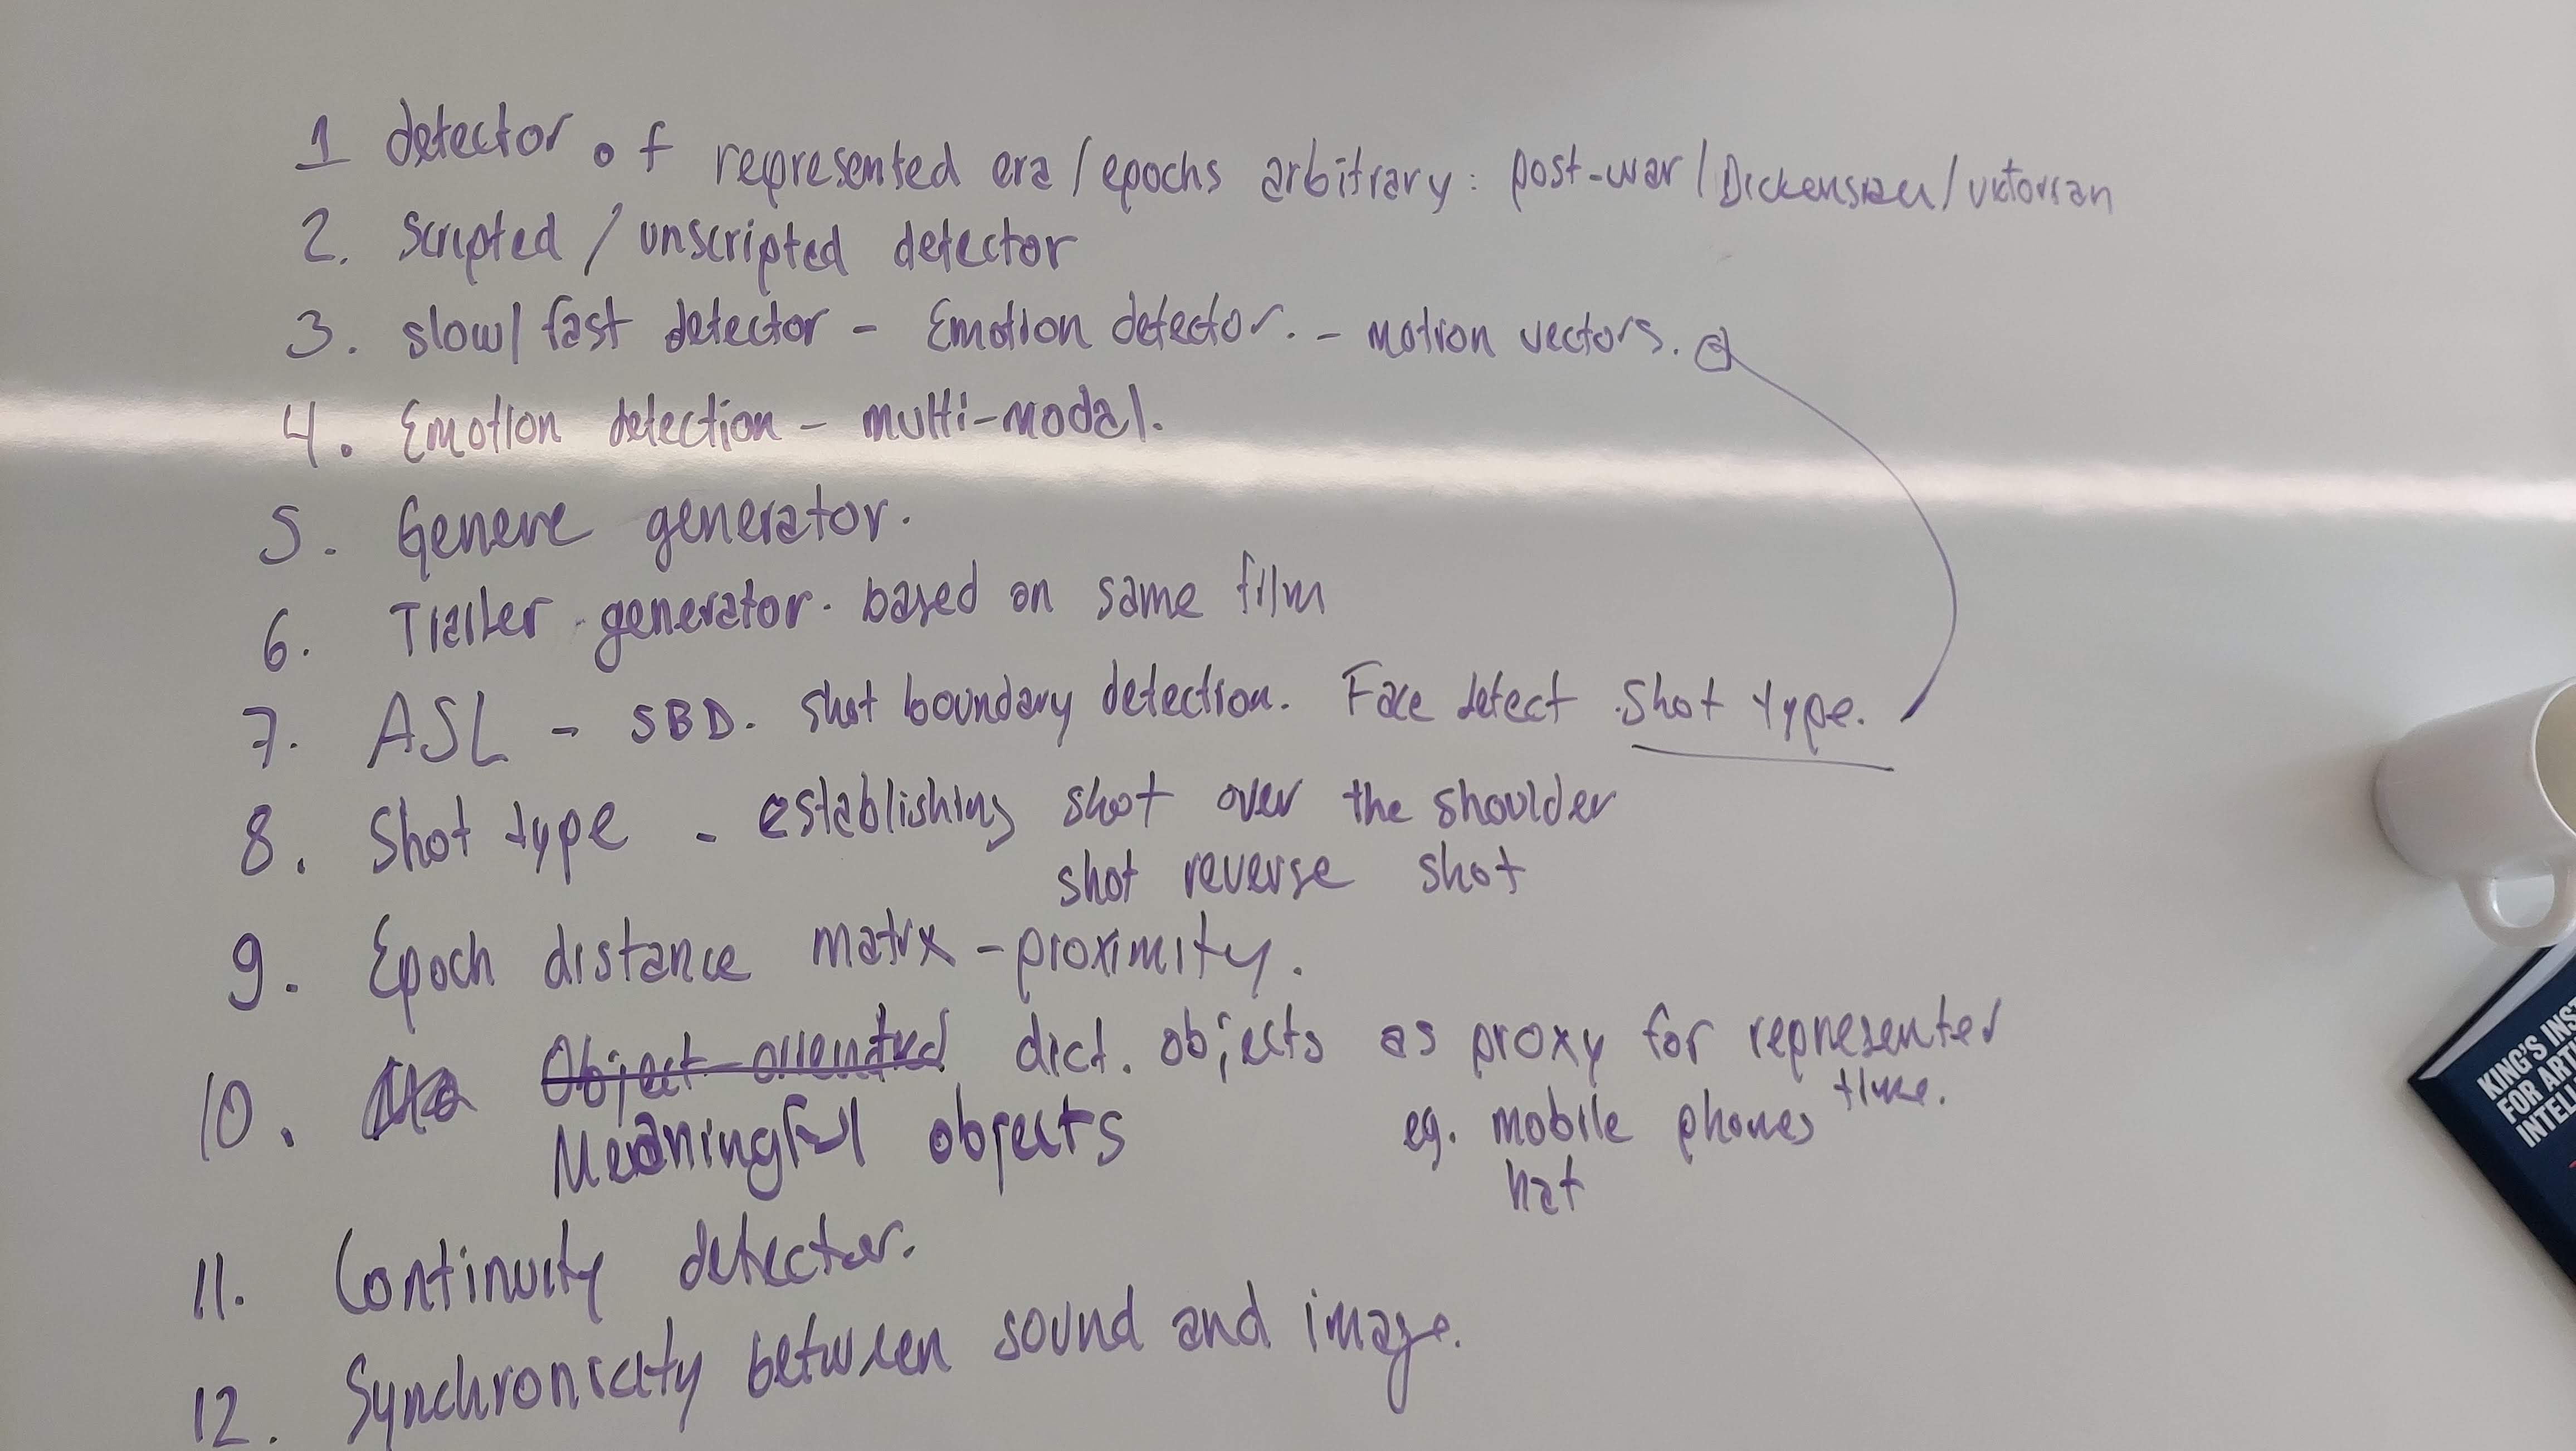 1 detector of represented era / epochs arbitrary: post-war / Dickensian / victorian
2. scripted / unscripted detector
3. slow / fast detector - Emotion detector. - motion vectors.
4. Emotion detection - multi-modal.
5. Genere generator.
6. Trailer generator. based on same film
7. ASL - SBD. shot boundary detection. Face detect shot type.
8. Shot type - establishing shot over the shoulder
shot reverse shot
9. Epoch distance matrix - proximity.
10. Object-oriented dict. objects as proxy for represented
time.
Meaningful objects eg. mobile phones
hat
11. Continuity detector.
12. Synchronicity between sound and image.
KING'S INST
FOR ARTI
INTELL